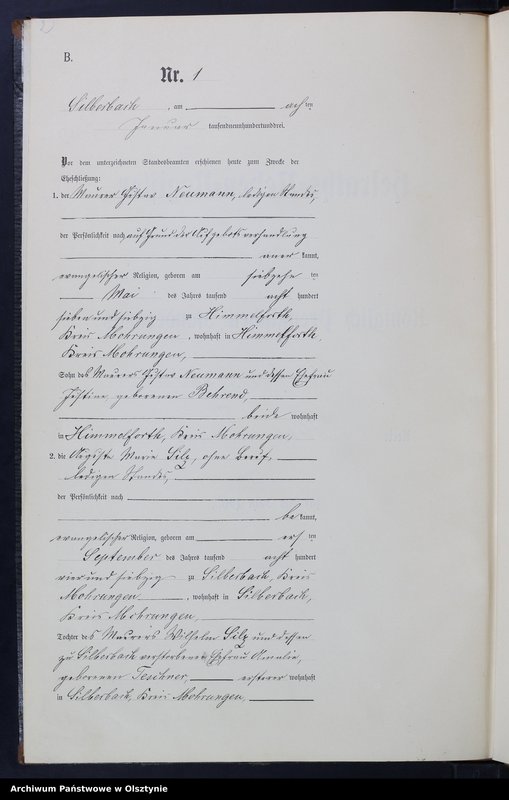 B.
Nr. 1
Silberbach, am achten
Januar tausendneunhundertunddrei.
Vor dem unterzeichneten Standesbeamten erschienen heute zum Zwecke der
Eheschließung:
1. der Maurer Gustav Neumann, ledigen Standes,
der Persönlichkeit nach auf Grund der Aufgebotsverhandlung
aner kannt,
evangelischer Religion, geboren am siebzehn ten
Mai des Jahres tausend acht hundert
sieben und siebzig zu Himmelforth,
Kreis Mohrungen, wohnhaft in Himmelforth,
Kreis Mohrungen,
Sohn des Maurers Gustav Neumann und dessen Ehefrau
Justine geborenen Behrend,
beide wohnhaft
in Himmelforth, Kreis Mohrungen,
2. die Auguste Marie Silz, ohne Beruf,
ledigen Standes,
der Persönlichkeit nach
be kannt,
evangelischer Religion, geboren am ers ten
September des Jahres tausend acht hundert
vier und siebzig zu Silberbach, Kreis
Mohrungen, wohnhaft in Silberbach,
Kreis Mohrungen,
Tochter des Maurers Wilhelm Silz und dessen
zu Silberbach verstorbenen Ehefrau Amalie,
geborenen Teschner, ersterer wohnhaft
in Silberbach, Kreis Mohrungen,
Archiwum Państwowe w Olsztynie